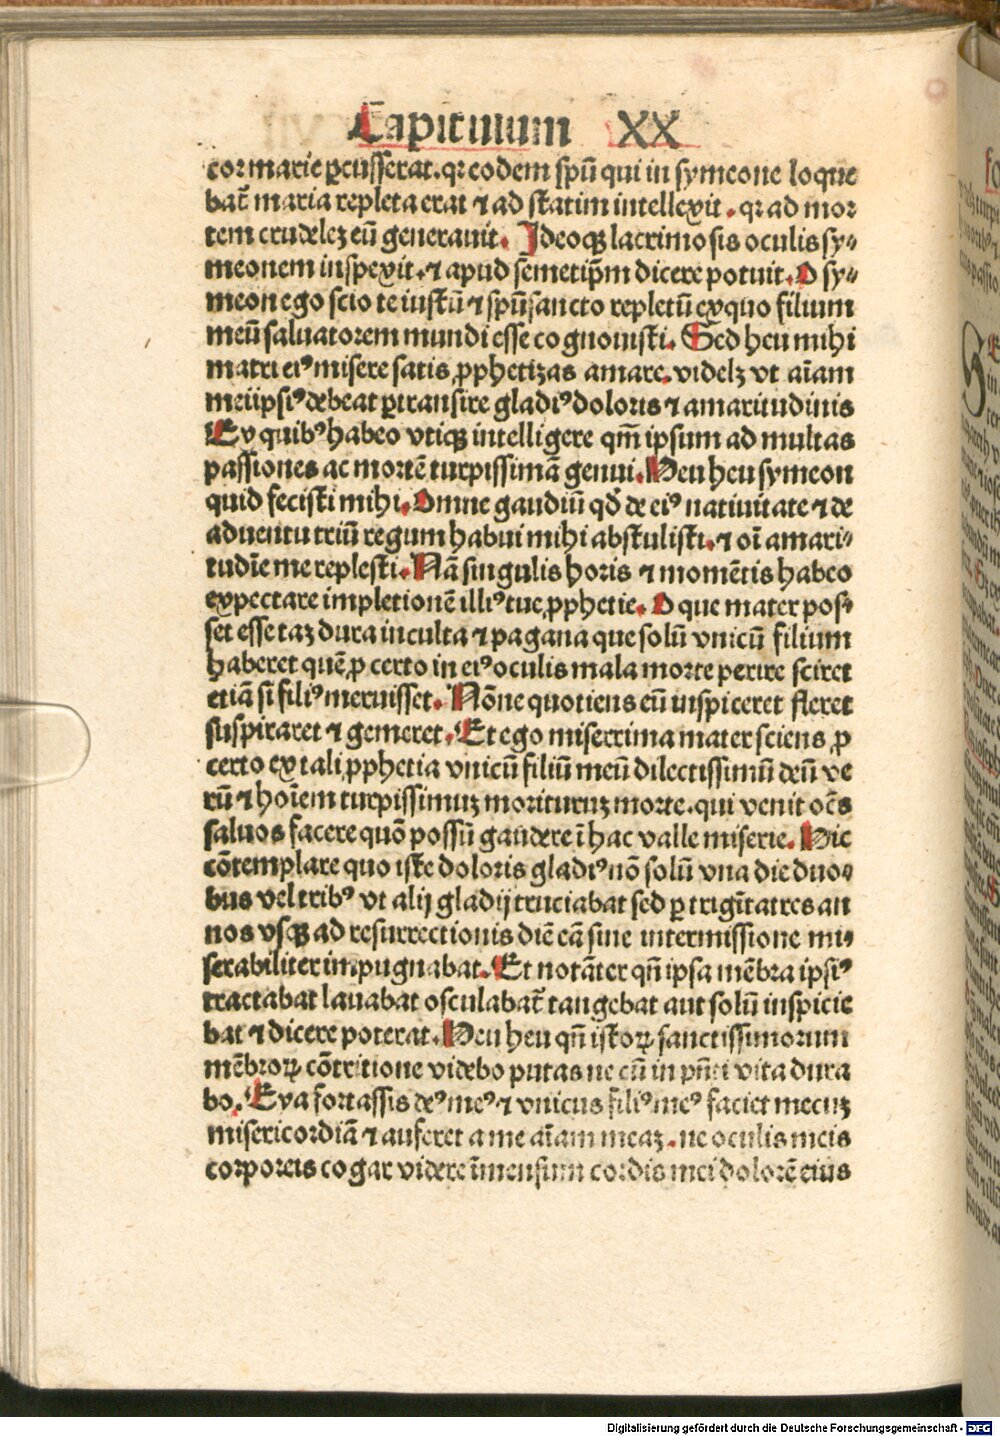 Capitulum XX
cor marie ꝑcusserat. qꝛ eodem spū qui in symeone loque
bat̄ maria repleta erat ⁊ ad statim intellexit. qꝛ ad mor
tem crudelez eū generauit. Ideoqꝫ lacrimosis oculis sy⸗
meonem inspexit. ⁊ apud semetip̄m dicere potuit. O sy⸗
meon ego scio te iustū ⁊ spū sancto repletū ex quo filium
meū saluatorem mundi esse cognouisti. Sed heu mihi
matri eiꝰ misere satis ꝓphetizas amare. videlꝫ vt aīam
meiipsiꝰ debeat ꝑtransire gladiꝰ doloris ⁊ amaritudinis
Ex quibꝰ habeo vtiqꝫ intelligere qm̄ ipsum ad multas
passiones ac mortē turpissimā genui. Heu heu symeon
quid fecisti mihi. Omne gaudiū qd̄ de eiꝰ natiuitate ⁊ de
aduentu triū regum habui mihi abstulisti. ⁊ oī amari⸗
tudīe me replesti. Nā singulis horis ⁊ momētis habeo
expectare impletionē illiꝰ tue ꝓphetie. O que mater pos⸗
set esse taz dura inculta ⁊ pagana que solū vnicū filium
haberet quē ꝓ certo in eiꝰ oculis mala morte perire sciret
etiā si filiꝰ meruisset. Nōne quotiens eū inspiceret fleret
suspiraret ⁊ gemeret. Et ego miserrima mater sciens ꝓ
certo ex tali ꝓphetia vnicū filiū meū dilectissimū deū ve
rū ⁊ hoīem turpissimuz moriturnz morte. qui venit oēs
saluos facere quō possū gaudere ī hac valle miserie. Hic
cōtemplare quo iste doloris gladiꝰ nō solū vna die duo⸗
bus vel tribꝰ vt alij gladij truciabat sed ꝑ triginta tres an
nos vsqꝫ ad resurrectionis diē eā sine intermissione mi⸗
serabiliter impugnabat. Et notāter qn̄ ipsa mēbra ipsiꝰ
tractabat lauabat osculabat̄ tangebat aut solū inspicie
bat ⁊ dicere poterat. Heu heu qn̄ istoꝝ sanctissimorum
mēbroꝝ cōtritione videbo putas ne cū in pn̄ti vita dura
bo. Eya fortassis deꝰ meꝰ ⁊ vnicus filiꝰ meꝰ faciet mecuz
misericordiā ⁊ auferet a me aīam meaz. ne oculis meis
corporeis cogar videre īmensum cordis mei dolorē eius
Digitalisierung gefördert durch die Deutsche Forschungsgemeinschaft - DFG